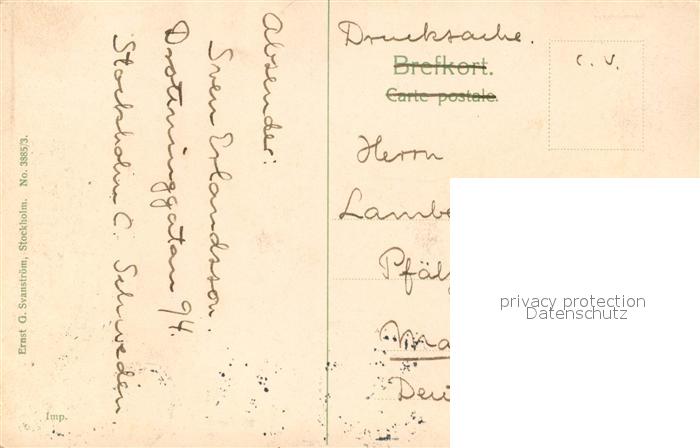 Absender:
Sven Erlandsson.
Drottninggatan 94.
Stockholm C. Schweden.
Ernst G. Svanström, Stockholm. No. 3885/3.
Imp.
Drucksache.
Brefkort.
Carte postale.
C. V.
Herrn
Lambe
Pfälz
Ma
Deu
privacy protection
Datenschutz